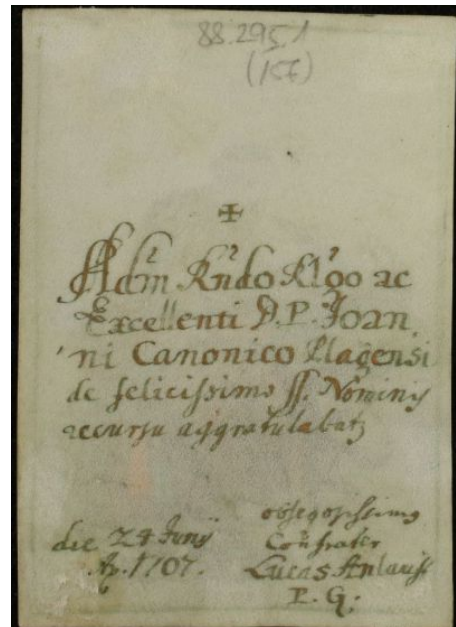 88.295 1
(156)
✠
Adm̃ Rñdo Rl̃go ac
Excellenti D. P. Joan
ni Canonico Plagensi
de felicissimo SS. Nominis
recursu aggratulabatʒ
die 24 Junÿ
Aᵒ. 1707.
Confrater
Lucas
P. G: